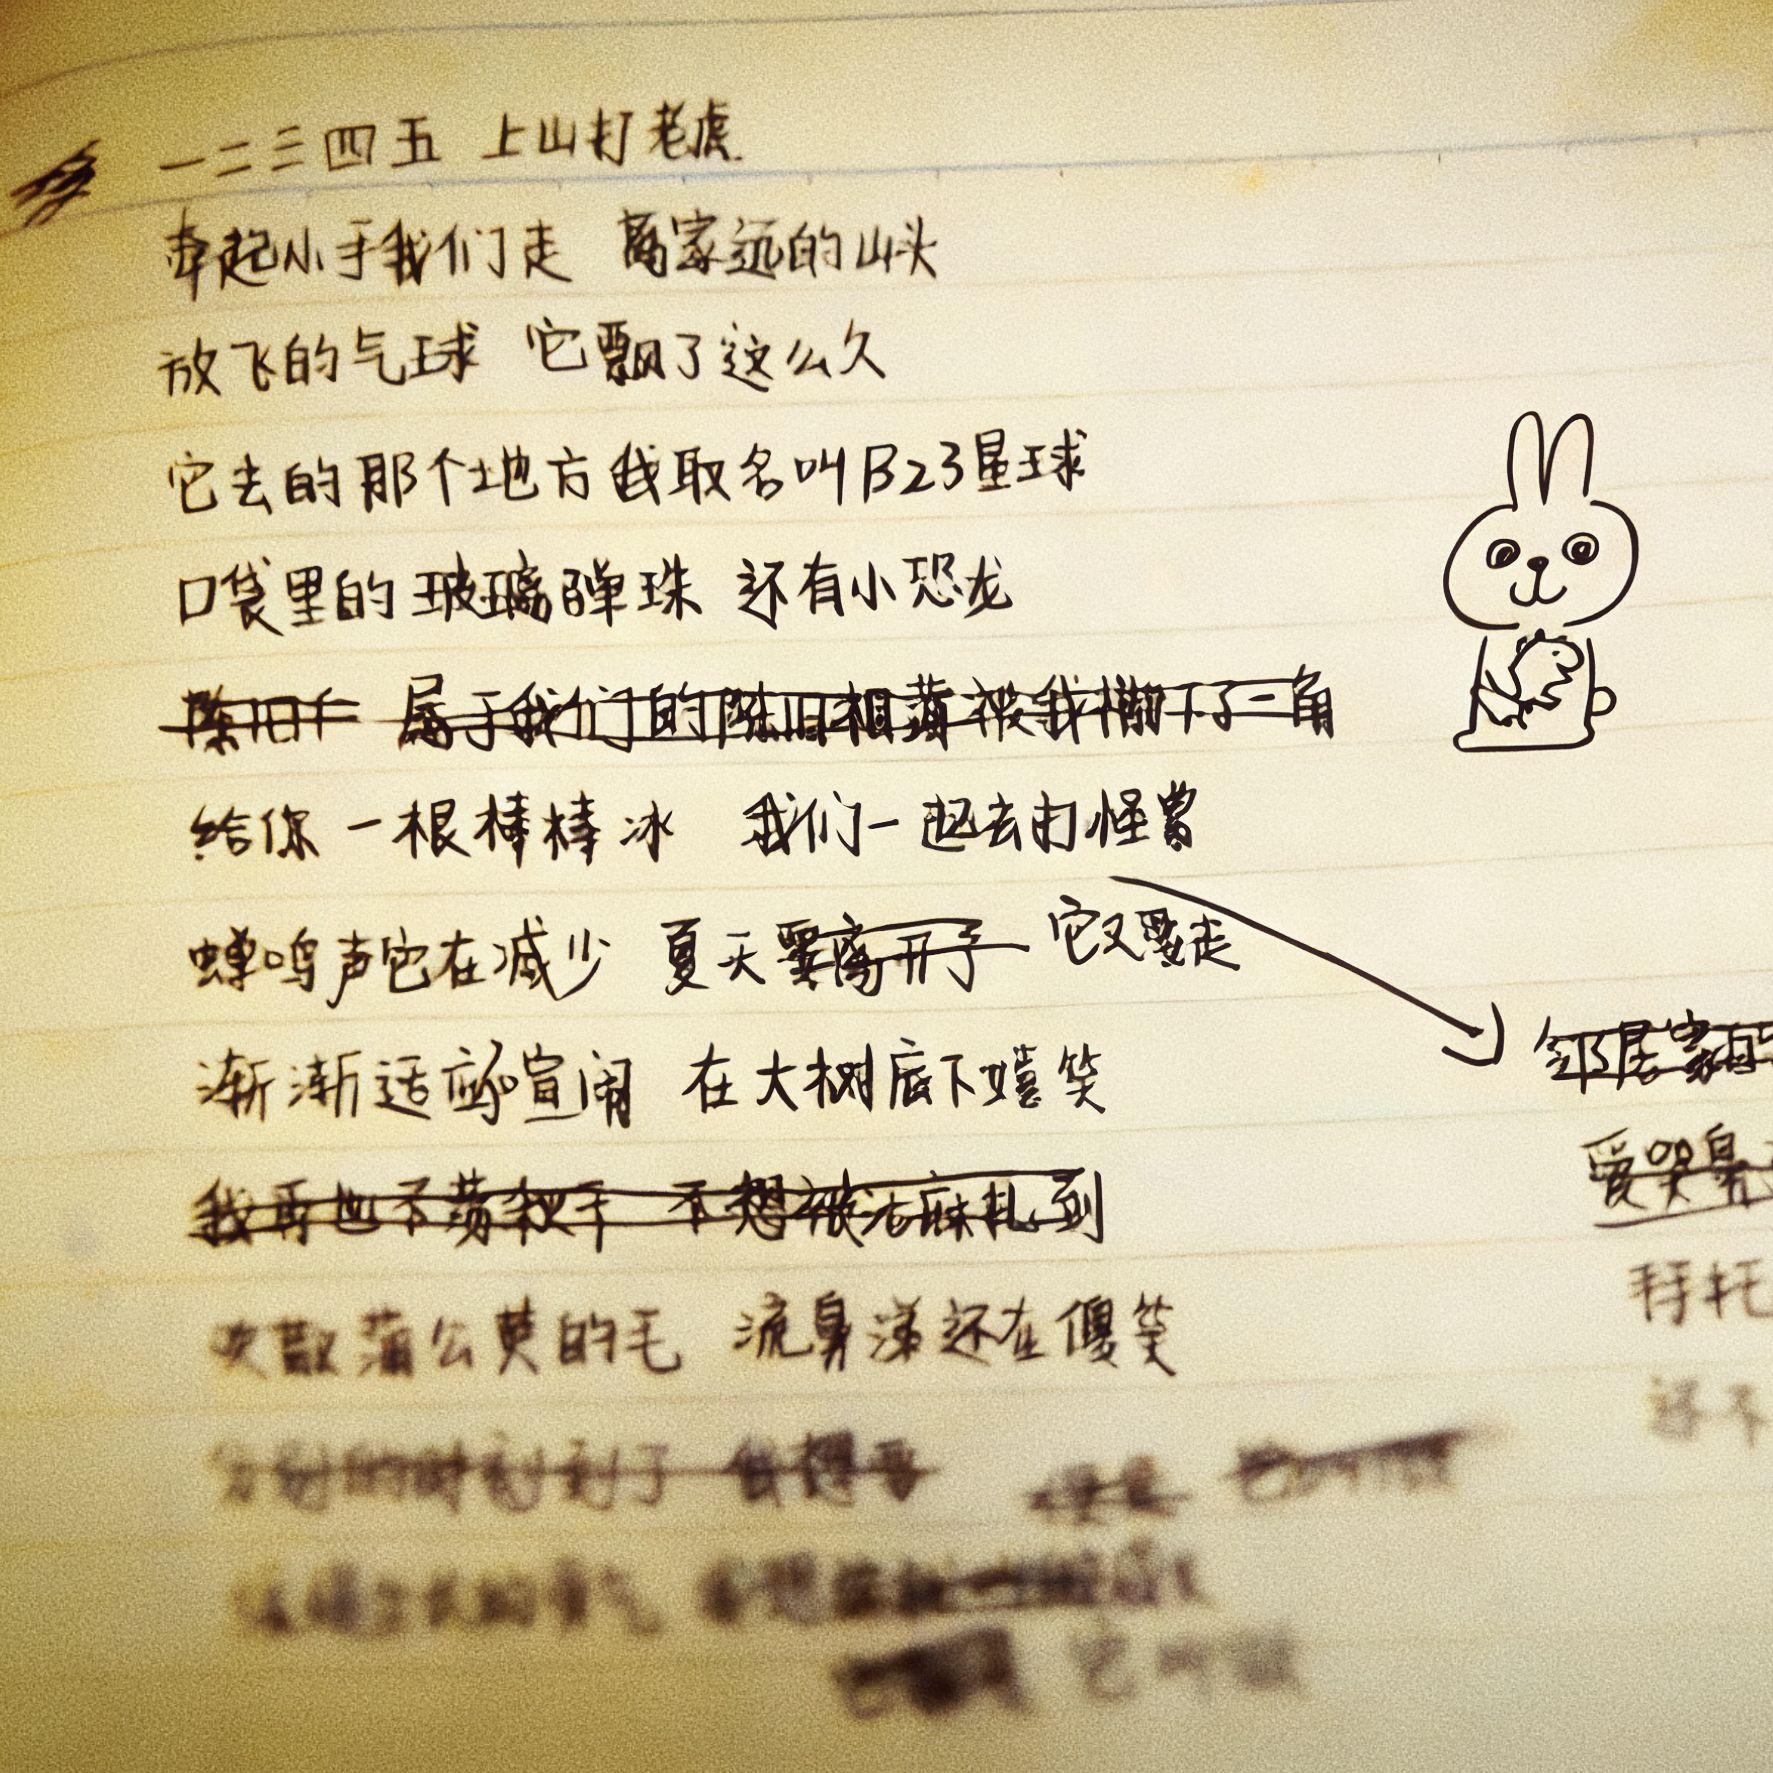 一二三四五 上山打老虎
牵起小手我们走 离家远的山头
放飞的气球 它飘了这么久
它去的那个地方我取名叫B23星球
口袋里的玻璃弹珠 还有小恐龙
陈旧 属于我们的陈旧相薄被我撕下了一角
给你一根棒棒冰 我们一起去打怪兽
蝉鸣声它在减少 夏天要离开了 它又要走
渐渐适应喧闹 在大树底下嬉笑
邻居家
我再也不荡秋千 不想被 麻扎到
爱哭鼻
吹散蒲公英的毛 流鼻涕还在傻笑
拜托
分别的时刻到了
还不